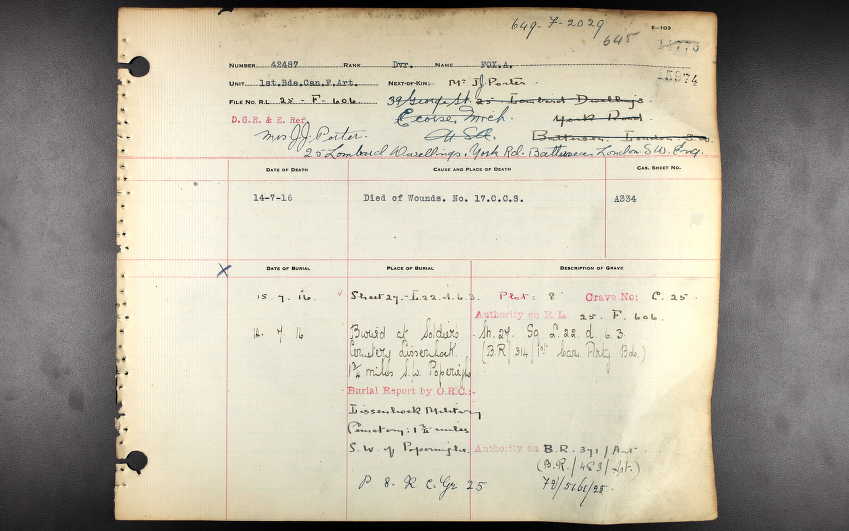 649-7-2029
645
E-103
NUMBER 42487 RANK Dvr. NAME FOX.A.
15974
UNIT 1st.Bde.Can.F.Art. NEXT-OF-KIN: Mr J.J. Porter
FILE No. R.L. 25 - F - 606 39 George St. 25 Lombard Dwellings
D.G.R. & E. Ref. Ecorse, Mich. York Road
Mrs J.J. Porter. U.S.A. Battersea. London S.W.
25 Lombard Dwellings, York Rd. Battersea, London S.W. Eng.
DATE OF DEATH CAUSE AND PLACE OF DEATH CAS. SHEET NO.
14-7-16 Died of Wounds. No. 17.C.C.S. A334
X DATE OF BURIAL PLACE OF BURIAL DESCRIPTION OF GRAVE
15. 7. 16. Sheet 27.-L.22.d.6.3. Plot: 8 Grave No: C. 25
Authority on R.L. 25. F. 606.
12. 7 16 Buried at Soldiers Sh. 27. Sq L.22. d. 6.3.
Cemetery Lissenhoek. (B.R/ 314/ 1st Can. Arty Bde.)
1¾ miles S.W. Poperinghe
Burial Report by O.R.C:-
Lissenhoek Military
Cemetery: 1¾ miles
S.W. of Poperinghe. Authority on B.R. 391/Art.
(B.R./483/Art.)
P 8. R C. Gr 25 72/5161/25.